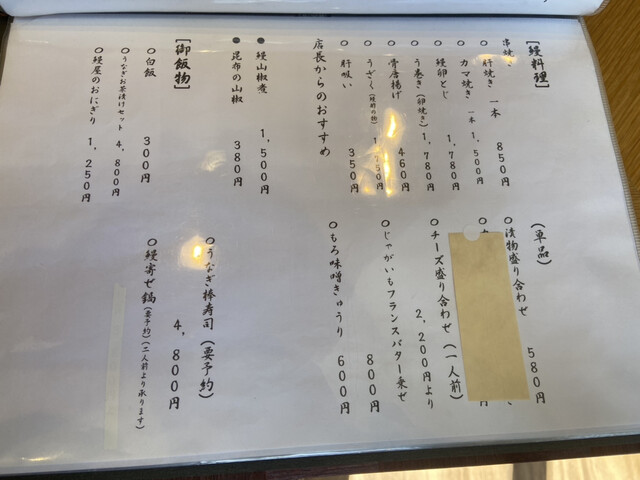 【鰻料理】
串焼き
○肝焼き 一本 850円
○カマ焼き 一本 1,500円
○鰻卵とじ 1,780円
○う巻き(卵焼き) 1,780円
○骨唐揚げ 460円
○うざく
○肝吸い 350円
店長からのおすすめ
●鰻山椒煮 1,500円
●昆布の山椒 380円
【御飯物】
○白飯 300円
○うなぎお茶漬けセット 4,800円
○鰻屋のおにぎり 1,250円
(単品)
○漬物盛り合わせ 580円
○チーズ盛り合わせ(一人前) 2,200円より
○じゃがいもフランスバター乗せ 800円
○もろ味噌きゅうり 600円
○うなぎ棒寿司(要予約) 4,800円
○鰻寄せ鍋(要予約)(二人前より承ります)